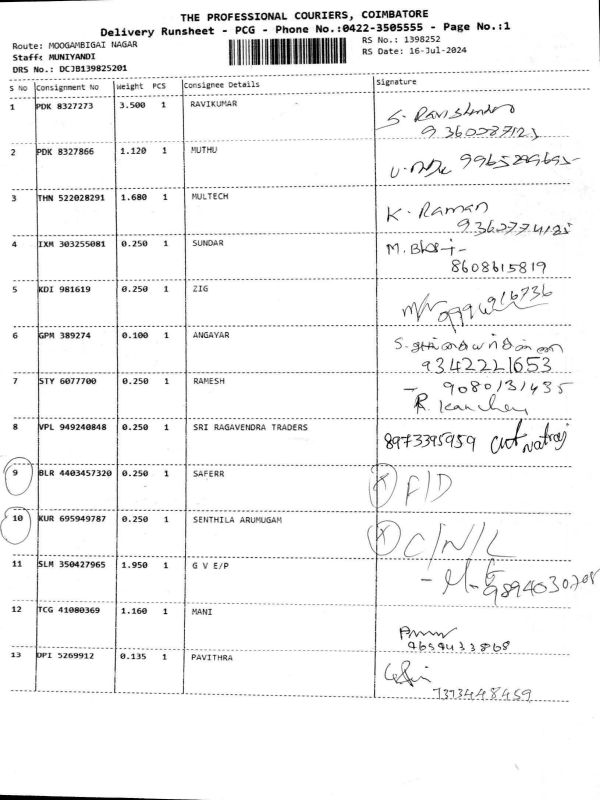 THE PROFESSIONAL COURIERS, COIMBATORE
Delivery Runsheet - PCG - Phone No.:0422-3505555 - Page No.:1
Route: MOOGAMBIGAI NAGAR
RS No.: 1398252
Staff: MUNIYANDI
RS Date: 16-Jul-2024
DRS No.: DCJB139825201
S No Consignment No Weight PCS Consignee Details Signature
1 PDK 8327273 3.500 1 RAVIKUMAR
2 PDK 8327866 1.120 1 MUTHU
3 THN 522028291 1.680 1 MULTECH K. Raman
4 IXM 303255081 0.250 1 SUNDAR
8608615819
5 KDI 981619 0.250 1 ZIG
6 GPM 389274 0.100 1 ANGAYAR
9342221653
7 STY 6077700 0.250 1 RAMESH 9080131435
8 VPL 949240848 0.250 1 SRI RAGAVENDRA TRADERS
8973395959
9 BLR 4403457320 0.250 1 SAFERR X F/D
10 KUR 695949787 0.250 1 SENTHILA ARUMUGAM X C/N/L
11 SLM 350427965 1.950 1 G V E/P
12 TCG 41080369 1.160 1 MANI
13 DPI 5269912 0.135 1 PAVITHRA
7373448459